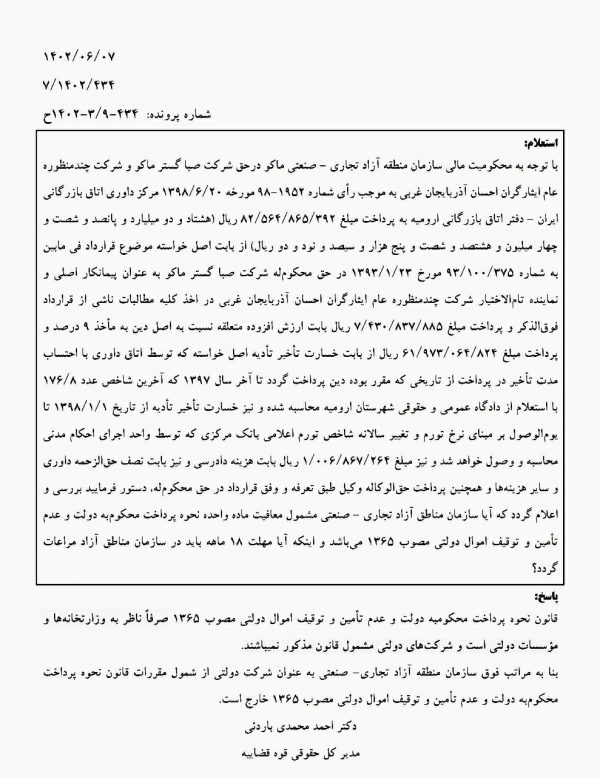 ۱۴۰۲/۰۶/۰۷
۷/۱۴۰۲/۴۳۴
شماره پرونده: ۴۳۴-۳/۹-۱۴۰۲ح
استعلام:
با توجه به محکومیت مالی سازمان منطقه آزاد تجاری - صنعتی ماکو درحق شرکت صبا گستر ماکو و شرکت چندمنظوره
عام ایثارگران احسان آذربایجان غربی به موجب رأی شماره ۱۹۵۲-۹۸ مورخه ۱۳۹۸/۶/۲۰ مرکز داوری اتاق بازرگانی
ایران - دفتر اتاق بازرگانی ارومیه به پرداخت مبلغ ۸۲/۵۶۴/۸۶۵/۳۹۲ ریال (هشتاد و دو میلیارد و پانصد و شصت و
چهار میلیون و هشتصد و شصت و پنج هزار و سیصد و نود و دو ریال) از بابت اصل خواسته موضوع قرارداد فی مابین
به شماره ۹۳/۱۰۰/۳۷۵ مورخ ۱۳۹۳/۱/۲۳ در حق محکوم‌له شرکت صبا گستر ماکو به عنوان پیمانکار اصلی و
نماینده تام‌الاختیار شرکت چندمنظوره عام ایثارگران احسان آذربایجان غربی در اخذ کلیه مطالبات ناشی از قرارداد
فوق‌الذکر و پرداخت مبلغ ۷/۴۳۰/۸۳۷/۸۸۵ ریال بابت ارزش افزوده متعلقه نسبت به اصل دین به مأخذ ۹ درصد و
پرداخت مبلغ ۶۱/۹۷۳/۰۶۴/۸۲۴ ریال از بابت خسارت تأخیر تأدیه اصل خواسته که توسط اتاق داوری با احتساب
مدت تأخیر در پرداخت از تاریخی که مقرر بوده دین پرداخت گردد تا آخر سال ۱۳۹۷ که آخرین شاخص عدد ۱۷۶/۸
با استعلام از دادگاه عمومی و حقوقی شهرستان ارومیه محاسبه شده و نیز خسارت تأخیر تأدیه از تاریخ ۱۳۹۸/۱/۱ تا
یوم‌الوصول بر مبنای نرخ تورم و تغییر سالانه شاخص تورم اعلامی بانک مرکزی که توسط واحد اجرای احکام مدنی
محاسبه و وصول خواهد شد و نیز مبلغ ۱/۰۰۶/۸۶۷/۲۶۴ ریال بابت هزینه دادرسی و نیز بابت نصف حق‌الزحمه داوری
و سایر هزینه‌ها و همچنین پرداخت حق‌الوکاله وکیل طبق تعرفه و وفق قرارداد در حق محکوم‌له، دستور فرمایید بررسی و
اعلام گردد که آیا سازمان مناطق آزاد تجاری - صنعتی مشمول معافیت ماده واحده نحوه پرداخت محکوم‌به دولت و عدم
تأمین و توقیف اموال دولتی مصوب ۱۳۶۵ می‌باشد و اینکه آیا مهلت ۱۸ ماهه باید در سازمان مناطق آزاد مراعات
گردد؟
پاسخ:
قانون نحوه پرداخت محکومبه دولت و عدم تأمین و توقیف اموال دولتی مصوب ۱۳۶۵ صرفاً ناظر به وزارتخانه‌ها و
مؤسسات دولتی است و شرکت‌های دولتی مشمول قانون مذکور نمیباشند.
بنا به مراتب فوق سازمان منطقه آزاد تجاری- صنعتی به عنوان شرکت دولتی از شمول مقررات قانون نحوه پرداخت
محکوم‌به دولت و عدم تأمین و توقیف اموال دولتی مصوب ۱۳۶۵ خارج است.
دکتر احمد محمدی باردئی
مدیر کل حقوقی قوه قضاییه